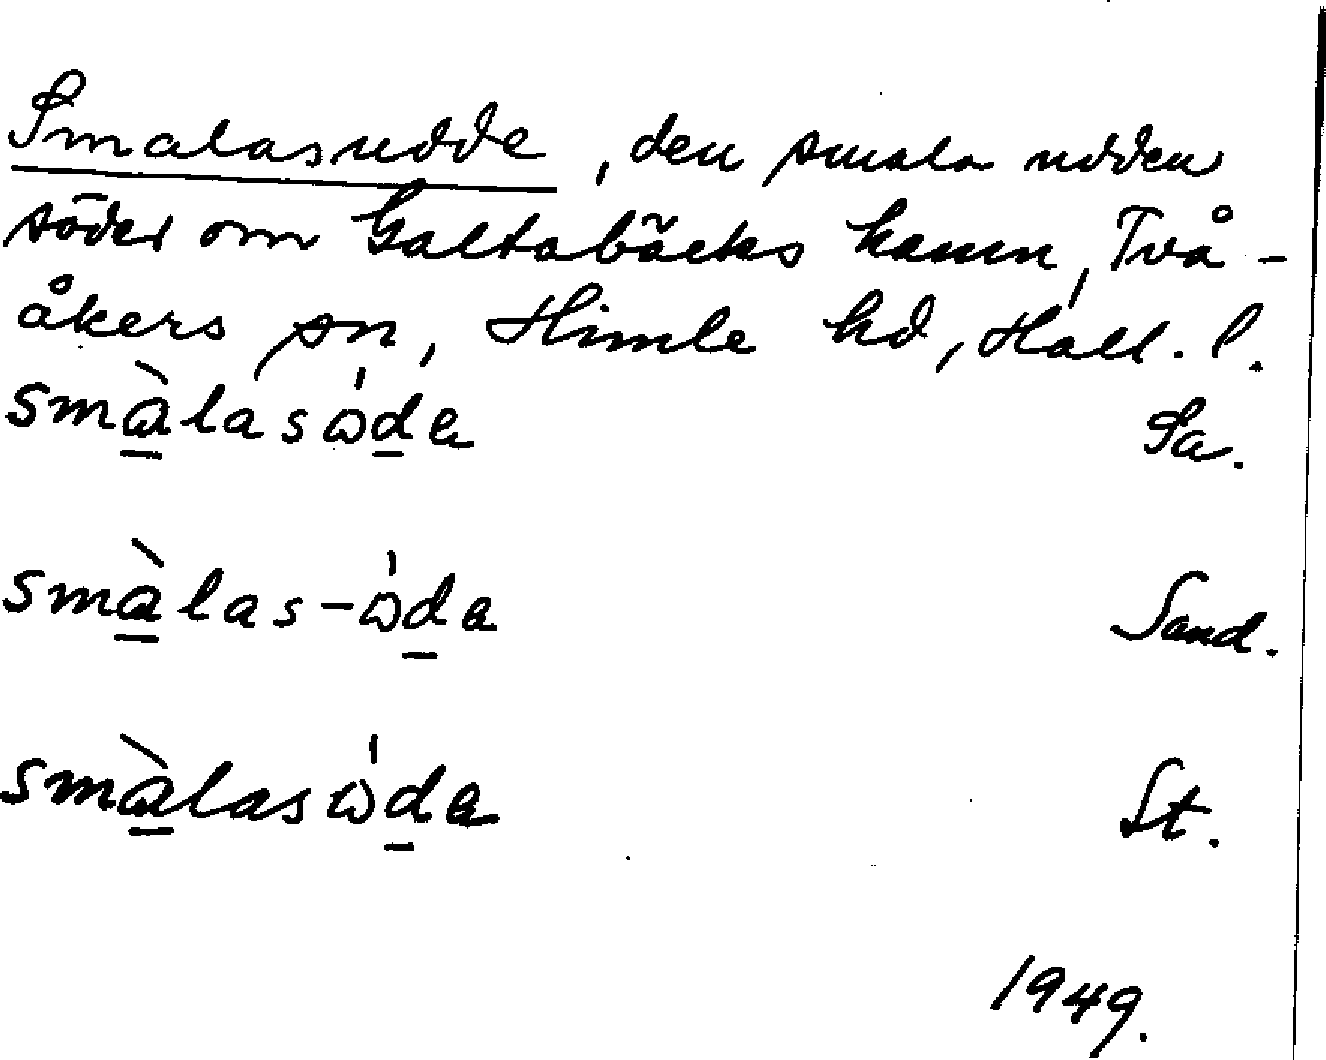 Smalasudde, den smala udden
söder om Galtabäcks hamn, Två-
åkers sn, Himle hd, Hall. l.
smàlasω̍da Sa.
smàlas-ω̍da Sand.
smàlasω̍da St.
1949.